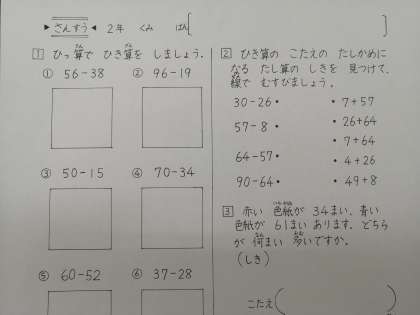 さんすう 2年 くみ ばん
1 ひっ算で ひき算を しましょう。
① 56-38 ② 96-19
③ 50-15 ④ 70-34
⑤ 60-52 ⑥ 37-28
2 ひき算の こたえの たしかめに
なる たし算の しきを 見つけて、
線で むすびましょう。
30-26・ ・7+57
57-8・ ・26+64
64-57・ ・7+64
90-64・ ・4+26
・49+8
3 赤い 色紙が 34まい、青い
色紙が 61まい あります。どちら
が 何まい 多いですか。
(しき)
こたえ(